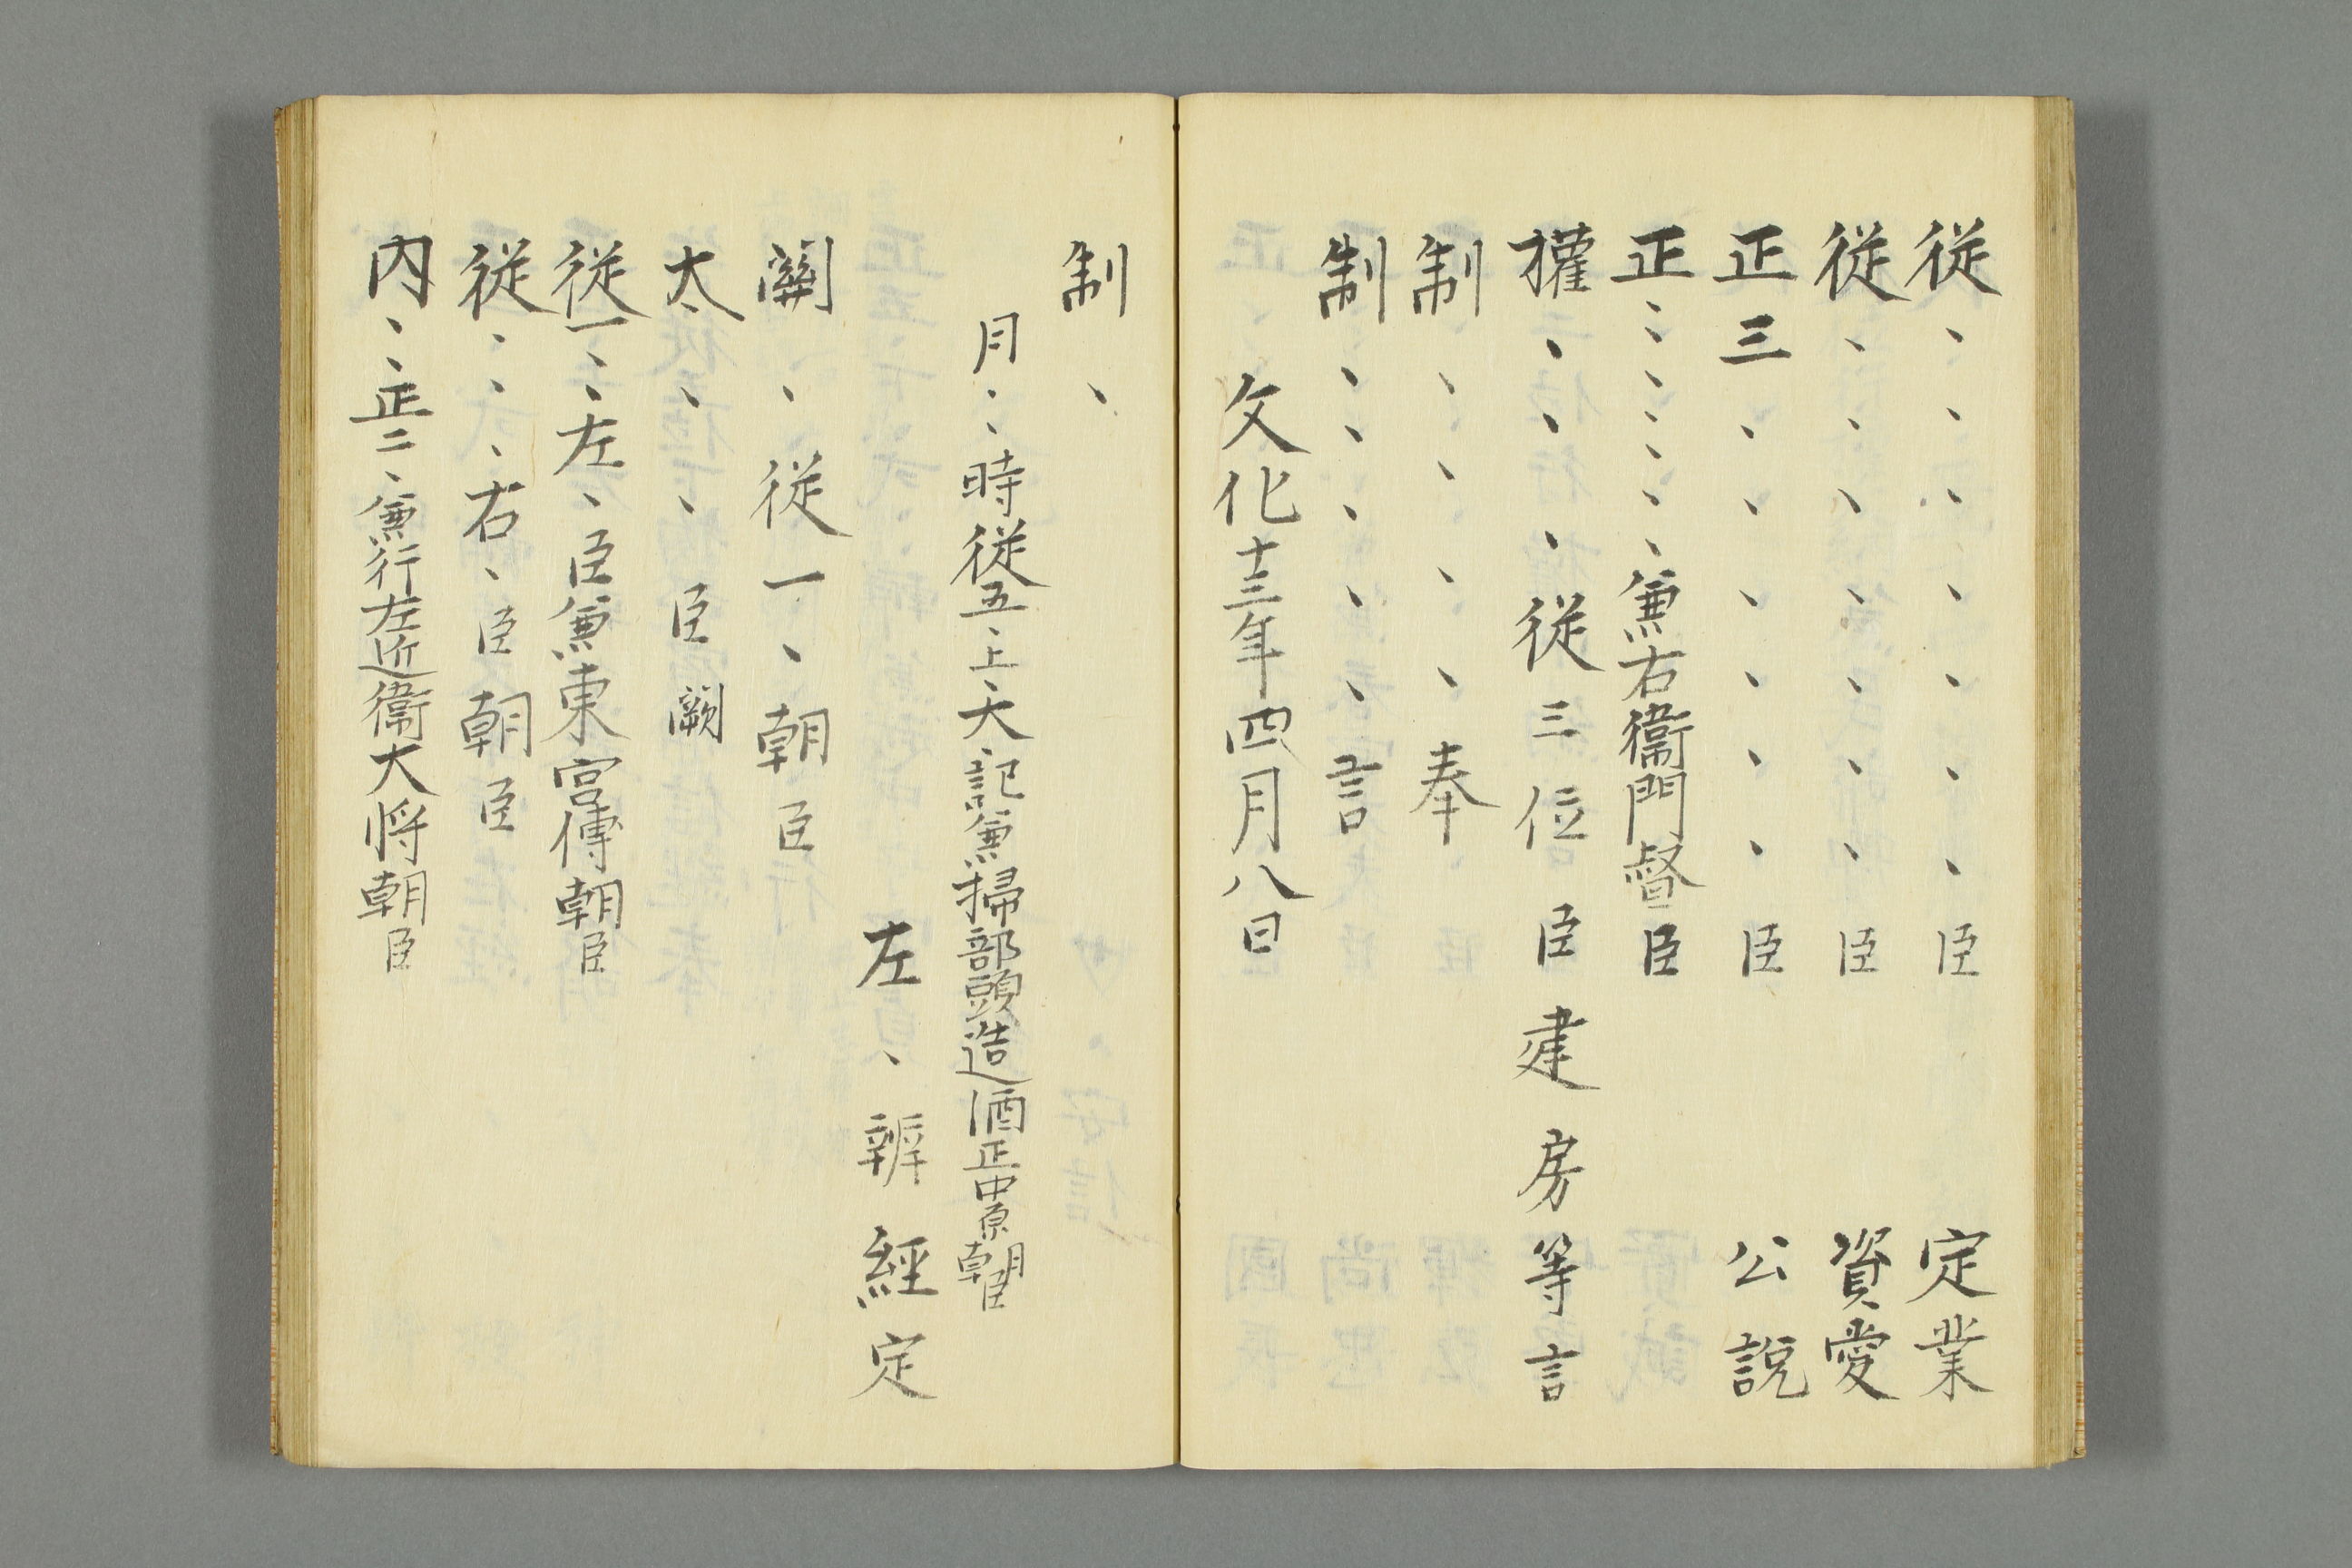 従、、、、、、、臣　定業
従、、、、、、、臣　資愛
正三、、、、、、臣　公説
正、、、、、、兼右衛門督臣
権、、、従三位臣建房等言
制、、、、、奉
制、、、、、言
文化十三年四月八日
制、
月、、時従五、上、大、記兼掃部頭造酒正中原朝臣
左、辨經定
關、従一、朝臣
太、、臣闕
従一、、左、臣兼東宮傅朝臣
従、、、右、臣朝臣
内、、正二、兼行左近衛大将朝臣